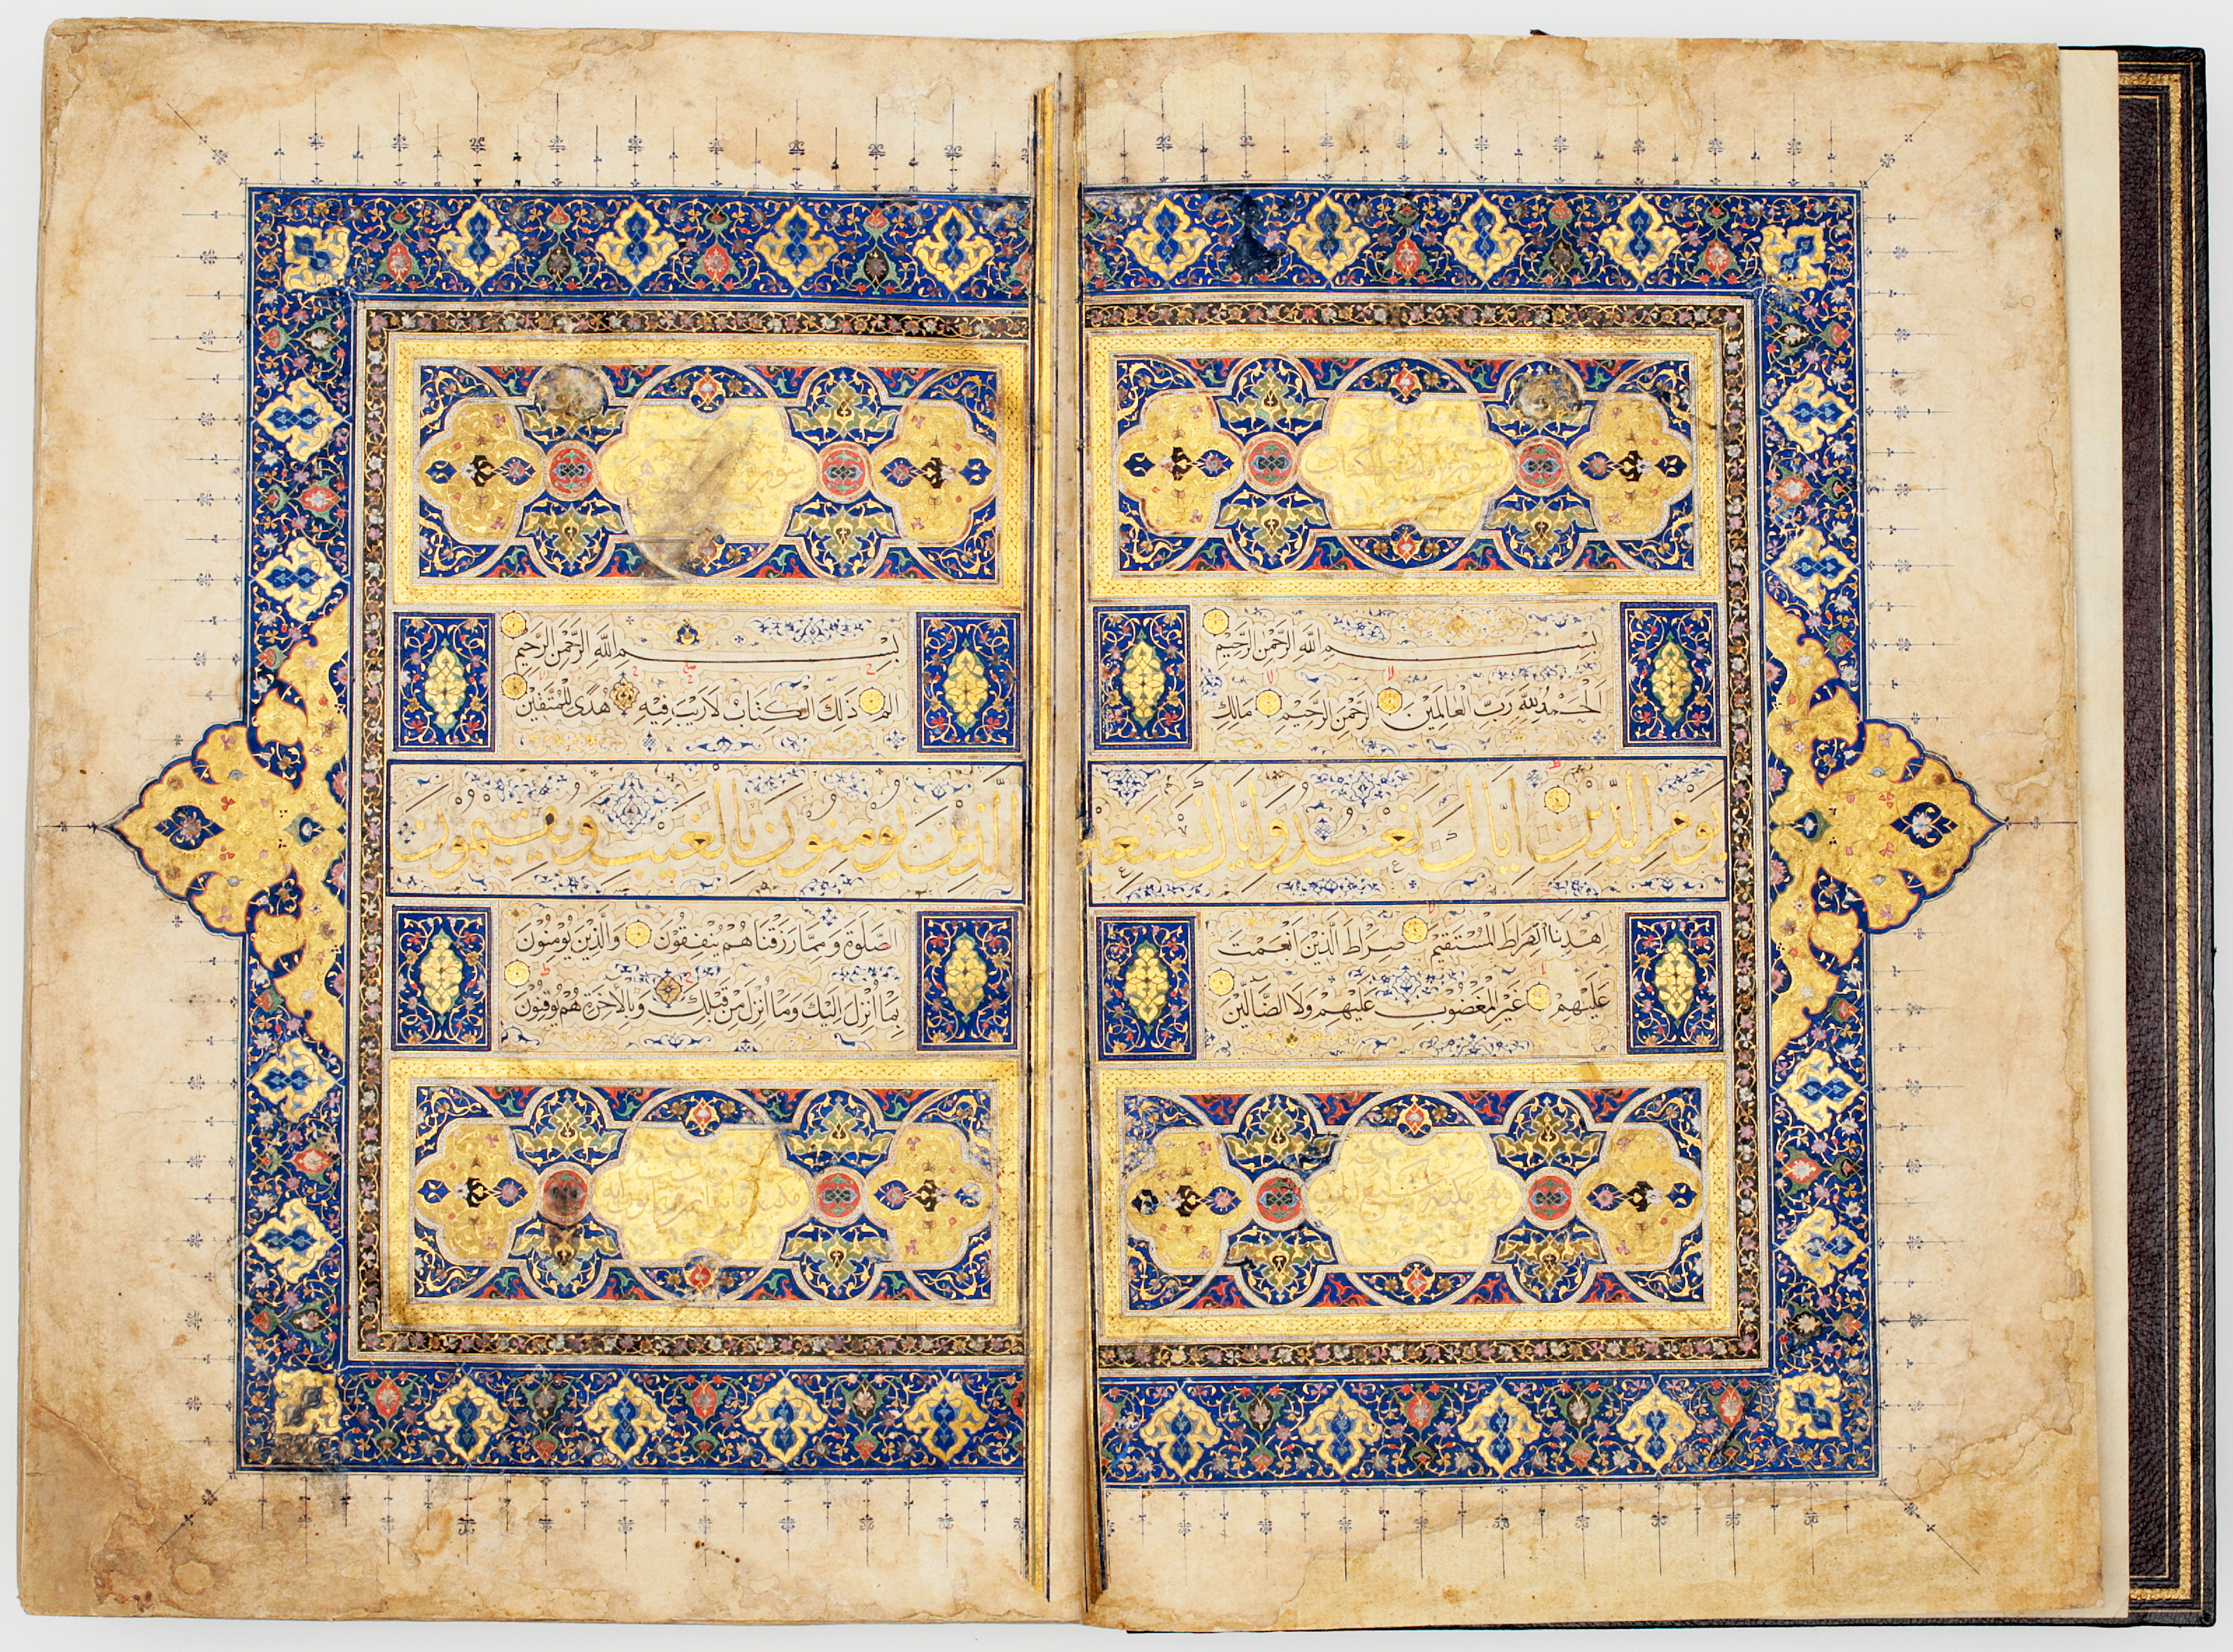 سورة
بِسْمِ اللَّهِ الرَّحْمَنِ الرَّحِيمِ
اَلْحَمْدُ لِلَّهِ رَبِّ الْعَالَمِينَ الرَّحْمَنِ الرَّحِيمِ مَالِكِ
يَوْمِ الدِّينِ اِيَّاكَ نَعْبُدُ وَاِيَّاكَ نَسْتَعِينُ
اِهْدِنَا الصِّرَاطَ الْمُسْتَقِيمَ صِرَاطَ الَّذِينَ اَنْعَمْتَ
عَلَيْهِمْ غَيْرِ الْمَغْضُوبِ عَلَيْهِمْ وَلَا الضَّآلِّينَ
سورة
بِسْمِ اللَّهِ الرَّحْمَنِ الرَّحِيمِ
الم ذَلِكَ الْكِتَابُ لَا رَيْبَ فِيهِ هُدًى لِلْمُتَّقِينَ
الَّذِينَ يُؤْمِنُونَ بِالْغَيْبِ وَيُقِيمُونَ
الصَّلٰوةَ وَمِمَّا رَزَقْنَاهُمْ يُنْفِقُونَ وَالَّذِينَ يُؤْمِنُونَ
بِمَا اُنْزِلَ اِلَيْكَ وَمَا اُنْزِلَ مِنْ قَبْلِكَ وَبِالْاٰخِرَةِ هُمْ يُوقِنُونَ